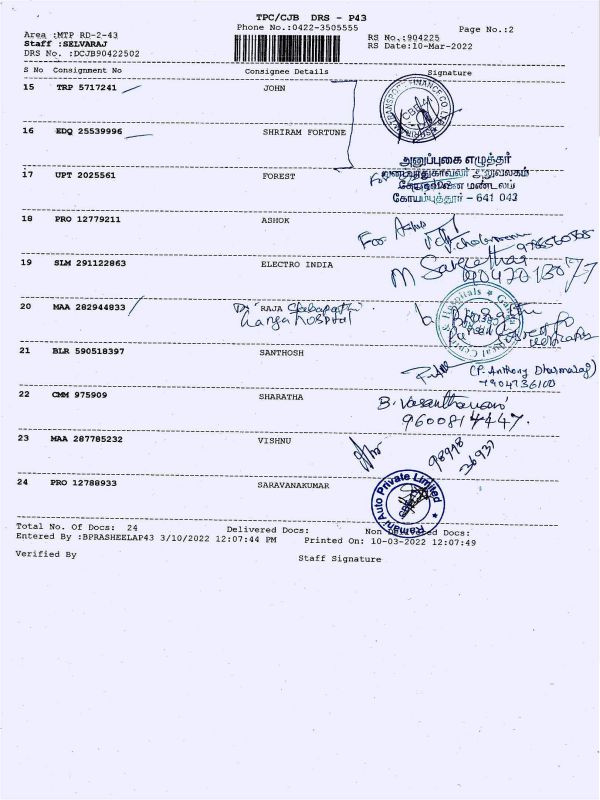 TPC/CJB DRS - P43
Phone No.:0422-3505555
Page No.:2
Area :MTP RD-2-43
RS No.:904225
Staff :SELVARAJ
RS Date:10-Mar-2022
DRS No. :DCJB90422502
S No Consignment No Consignee Details Signature
15 TRP 5717241 JOHN
16 EDQ 25539996 SHRIRAM FORTUNE
அனுப்புகை எழுத்தர்
17 UPT 2025561 FOREST
மண்டலம்
கோயம்புத்தூர் - 641 043
18 PRO 12779211 ASHOK
For Ashok
9786560505
19 SLM 291122863 ELECTRO INDIA
20 MAA 282944833 Dr RAJA
Ganga hospital
21 BLR 590518397 SANTHOSH
(P. Anthony Dharmaraj)
7904736100
22 CMM 975909 SHARATHA
B. Vasanthamani
9600814447.
23 MAA 287785232 VISHNU
98948
36937
24 PRO 12788933 SARAVANAKUMAR
Ramani Auto Private Limited
Total No. Of Docs: 24 Delivered Docs: Non Delivered Docs:
Entered By :BPRASHEELAP43 3/10/2022 12:07:44 PM Printed On: 10-03-2022 12:07:49
Verified By Staff Signature